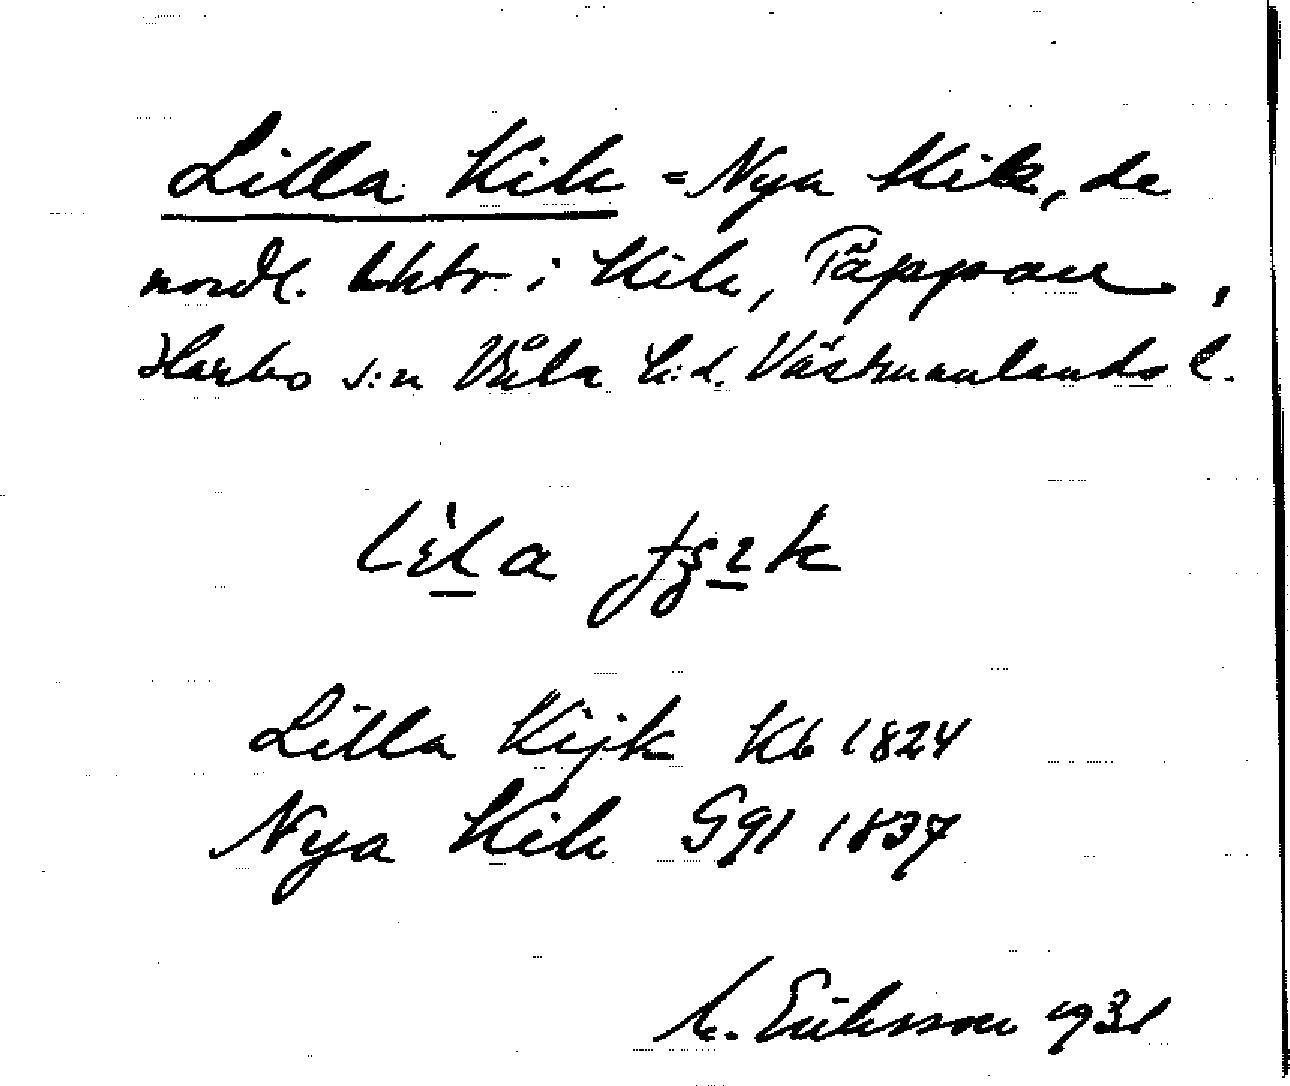 Lilla Kik = Nya Kik, de
nordl. bbtr i Kik, Päppan,
Harbo s:n Våla h:d. Västmanlands l.
Lilla Kijk Kb 1824
Nya Kik S91 1837
M. Eriksson 1931